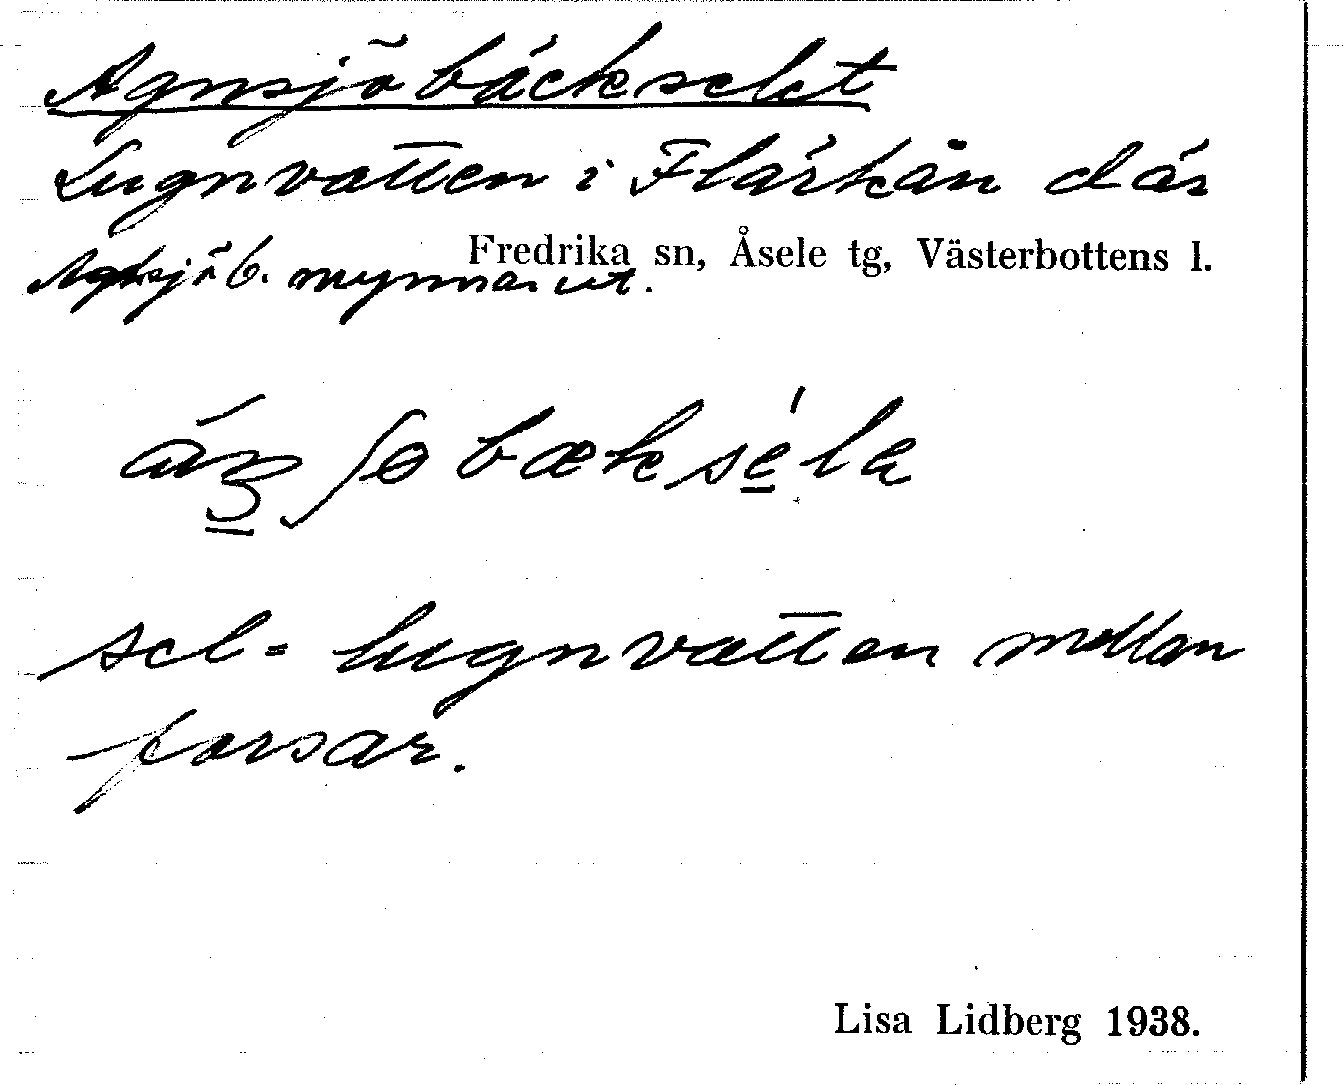 Agnsjöbäckselet
Lugnvatten i Flärkån där
Fredrika sn, Åsele tg, Västerbottens l.
Agnsjöb. mynnar ut.
sel = lugnvatten mellan
forsar.
Lisa Lidberg 1938.